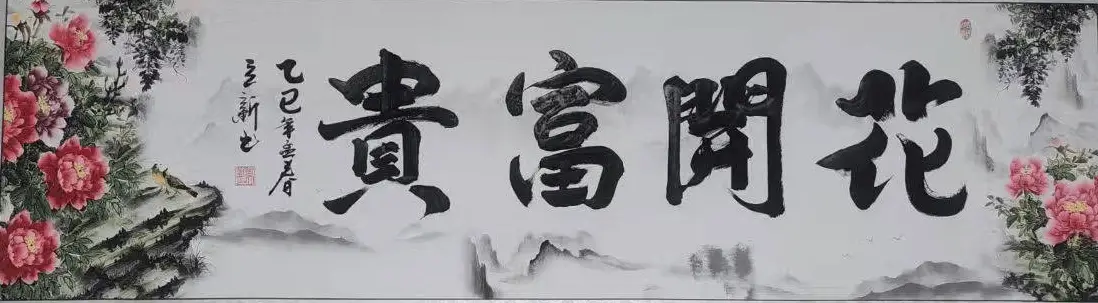 花開富貴
乙巳年孟春
立新书